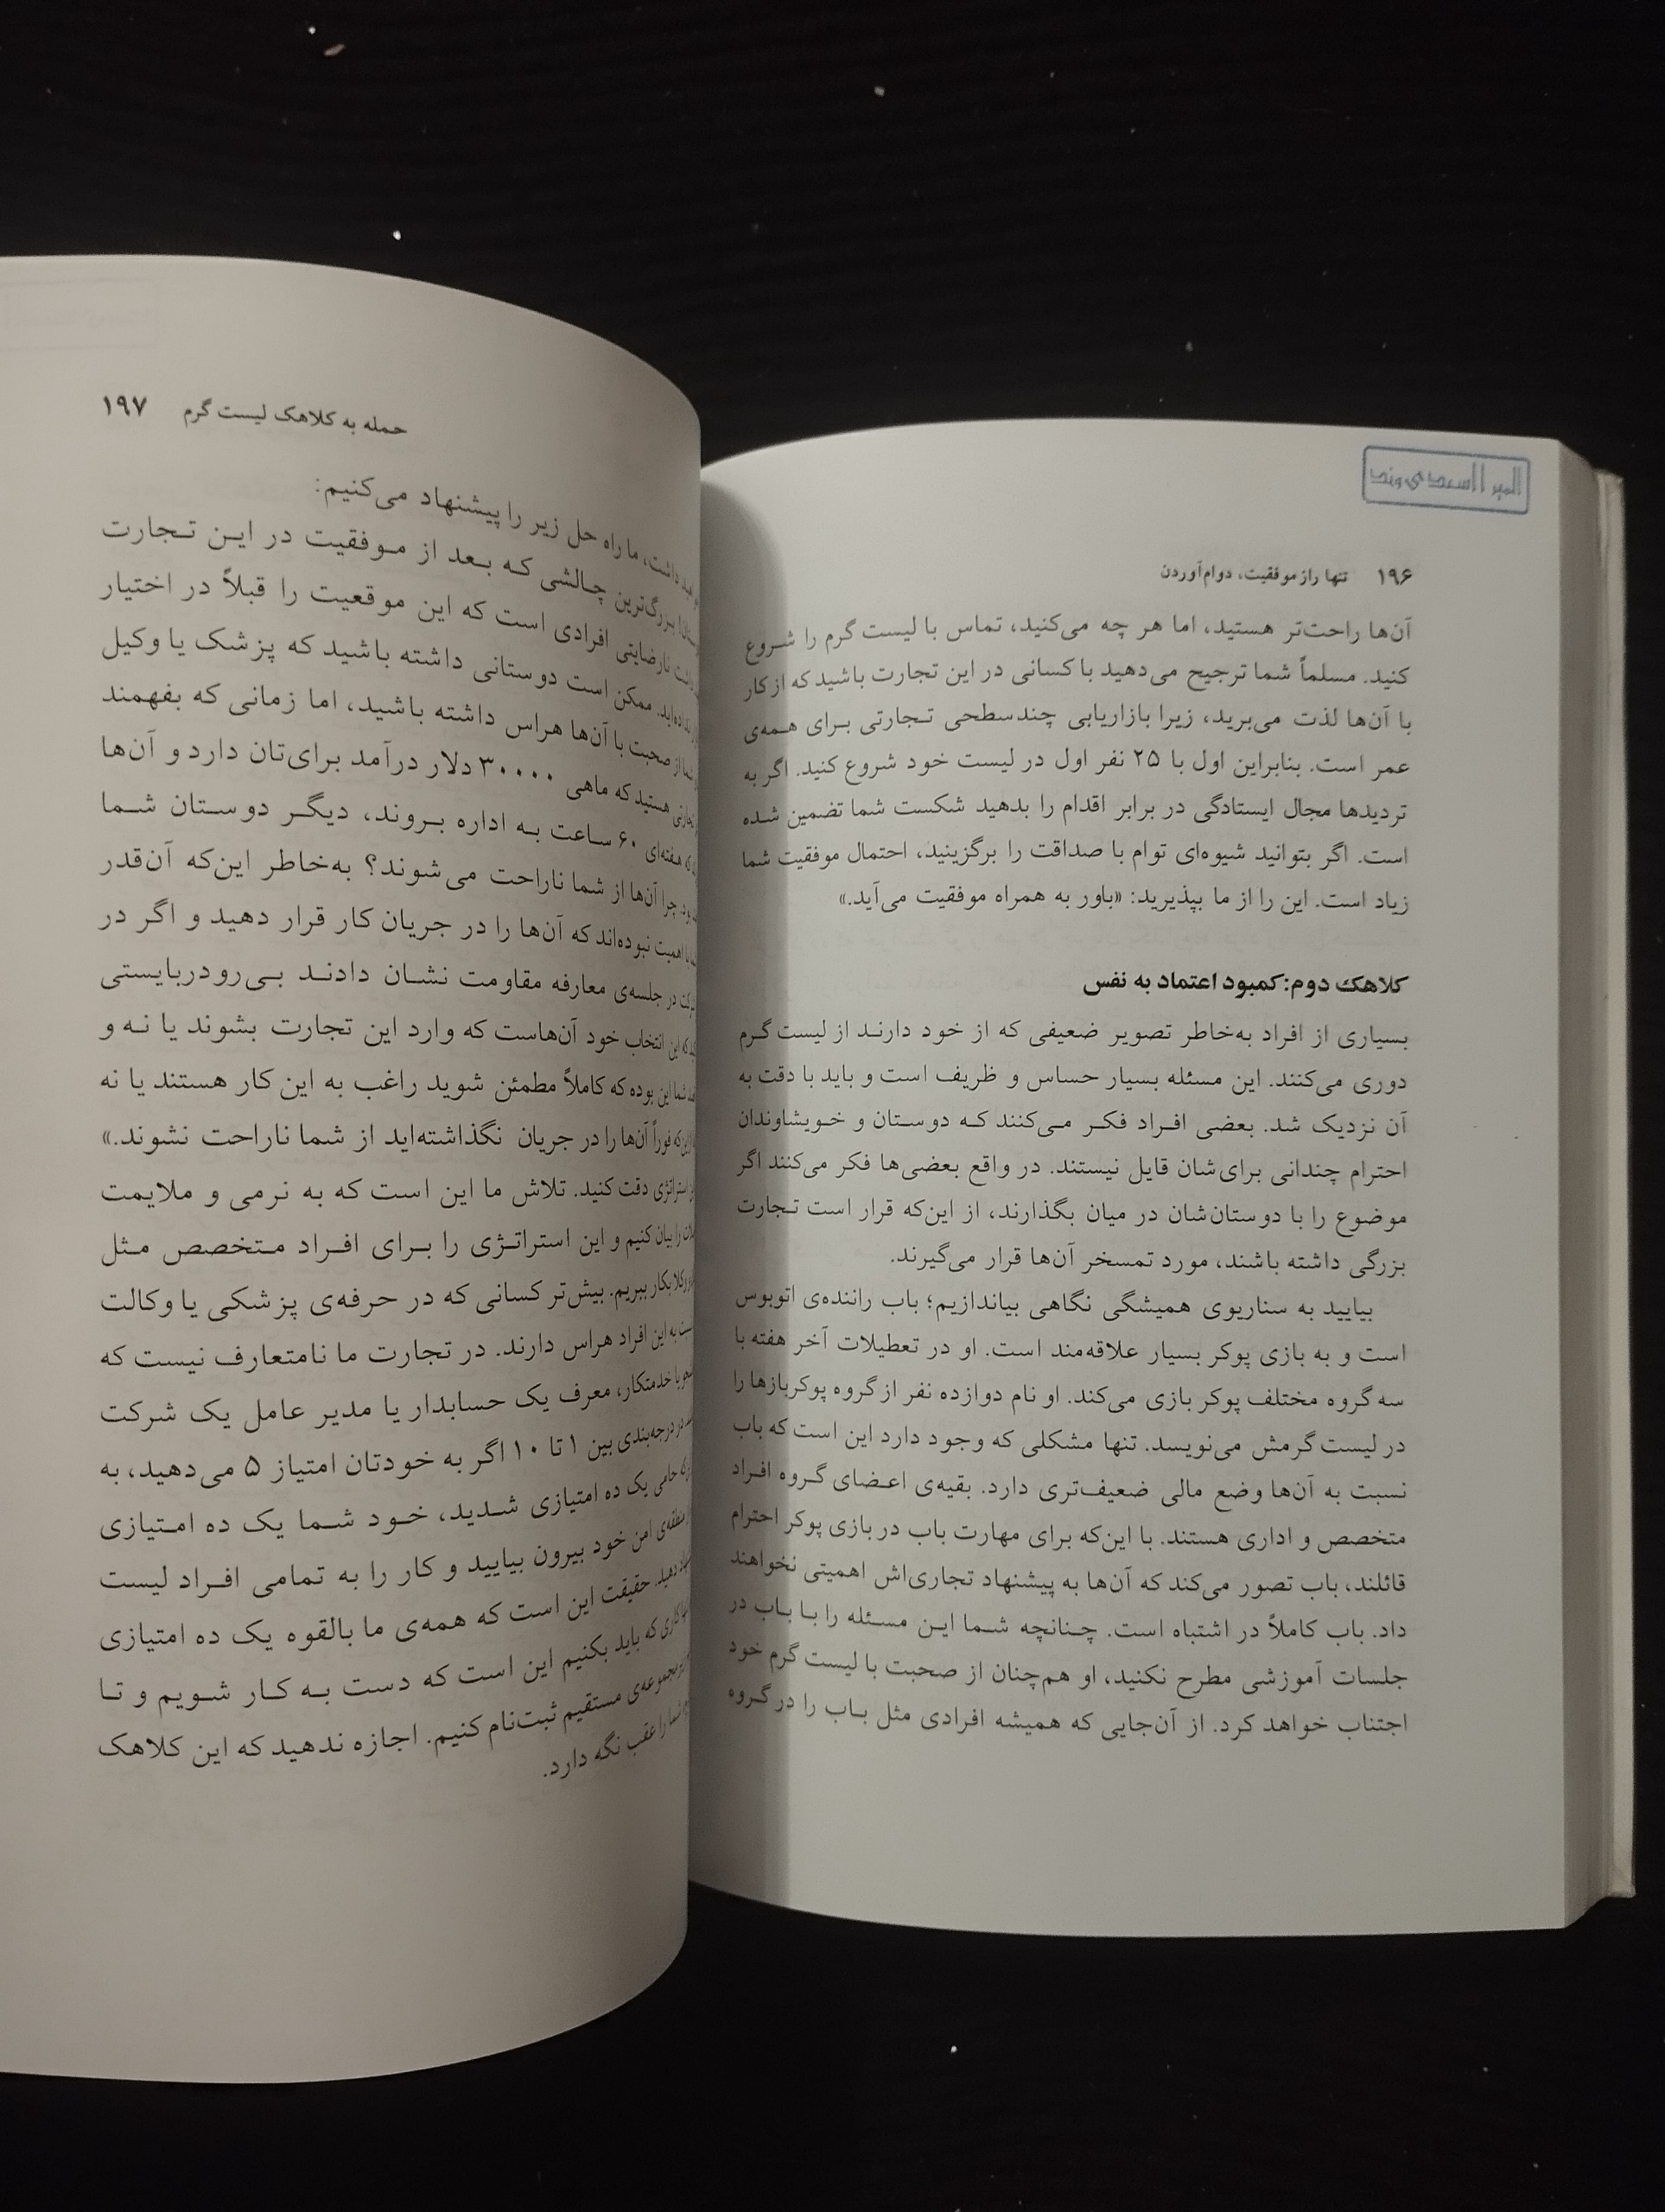 ۱۹۶ تنها راز موفقیت، دوام‌آوردن
آن‌ها راحت‌تر هستید، اما هر چه می‌کنید، تماس با لیست گرم را شروع
کنید. مسلماً شما ترجیح می‌دهید با کسانی در این تجارت باشید که از کار
با آن‌ها لذت می‌برید، زیرا بازاریابی چندسطحی تجارتی برای همه‌ی
عمر است. بنابراین اول با ۲۵ نفر اول در لیست خود شروع کنید. اگر به
تردیدها مجال ایستادگی در برابر اقدام را بدهید شکست شما تضمین شده
است. اگر بتوانید شیوه‌ای توام با صداقت را برگزینید، احتمال موفقیت شما
زیاد است. این را از ما بپذیرید: «باور به همراه موفقیت می‌آید.»
کلاهک دوم: کمبود اعتماد به نفس
بسیاری از افراد به‌خاطر تصویر ضعیفی که از خود دارند از لیست گرم
دوری می‌کنند. این مسئله بسیار حساس و ظریف است و باید با دقت به
آن نزدیک شد. بعضی افراد فکر می‌کنند که دوستان و خویشاوندان
احترام چندانی برای‌شان قایل نیستند. در واقع بعضی‌ها فکر می‌کنند اگر
موضوع را با دوستان‌شان در میان بگذارند، از این‌که قرار است تجارت
بزرگی داشته باشند، مورد تمسخر آن‌ها قرار می‌گیرند.
بیایید به سناریوی همیشگی نگاهی بیاندازیم؛ باب راننده‌ی اتوبوس
است و به بازی پوکر بسیار علاقه‌مند است. او در تعطیلات آخر هفته با
سه گروه مختلف پوکر بازی می‌کند. او نام دوازده نفر از گروه پوکربازها را
در لیست گرمش می‌نویسد. تنها مشکلی که وجود دارد این است که باب
نسبت به آن‌ها وضع مالی ضعیف‌تری دارد. بقیه‌ی اعضای گروه افراد
متخصص و اداری هستند. با این‌که برای مهارت باب در بازی پوکر احترام
قائلند، باب تصور می‌کند که آن‌ها به پیشنهاد تجاری‌اش اهمیتی نخواهند
داد. باب کاملاً در اشتباه است. چنانچه شما این مسئله را با باب در
جلسات آموزشی مطرح نکنید، او هم‌چنان از صحبت با لیست گرم خود
اجتناب خواهد کرد. از آن‌جایی که همیشه افرادی مثل باب را در گروه
حمله به کلاهک لیست گرم ۱۹۷
داشت، ما راه حل زیر را پیشنهاد می‌کنیم:
بزرگ‌ترین چالشی که بعد از موفقیت در این تجارت
نارضایتی افرادی است که این موقعیت را قبلاً در اختیار
ممکن است دوستانی داشته باشید که پزشک یا وکیل
از صحبت با آن‌ها هراس داشته باشید، اما زمانی که بفهمند
هستید که ماهی ۳۰۰۰۰ دلار درآمد برای‌تان دارد و آن‌ها
که هفته‌ای ۶۰ ساعت به اداره بروند، دیگر دوستان شما
چرا آن‌ها از شما ناراحت می‌شوند؟ به‌خاطر این‌که آن‌قدر
با اهمیت نبوده‌اند که آن‌ها را در جریان کار قرار دهید و اگر در
در جلسه‌ی معارفه مقاومت نشان دادند بی‌رودربایستی
که این انتخاب خود آن‌هاست که وارد این تجارت بشوند یا نه و
شما این بوده که کاملاً مطمئن شوید راغب به این کار هستند یا نه
که فوراً آن‌ها را در جریان نگذاشته‌اید از شما ناراحت نشوند.»
استراتژی دقت کنید. تلاش ما این است که به نرمی و ملایمت
را بیان کنیم و این استراتژی را برای افراد متخصص مثل
وکلا بکار ببریم. بیش‌تر کسانی که در حرفه‌ی پزشکی یا وکالت
به این افراد هراس دارند. در تجارت ما نامتعارف نیست که
یا خدمتکار، معرف یک حسابدار یا مدیر عامل یک شرکت
در درجه‌بندی بین ۱ تا ۱۰ اگر به خودتان امتیاز ۵ می‌دهید، به
حامی یک ده امتیازی شدید، خود شما یک ده امتیازی
منطقه‌ی امن خود بیرون بیایید و کار را به تمامی افراد لیست
دهید. حقیقت این است که همه‌ی ما بالقوه یک ده امتیازی
کاری که باید بکنیم این است که دست به کار شویم و تا
مجموعه‌ی مستقیم ثبت‌نام کنیم. اجازه ندهید که این کلاهک
شما را عقب نگه دارد.